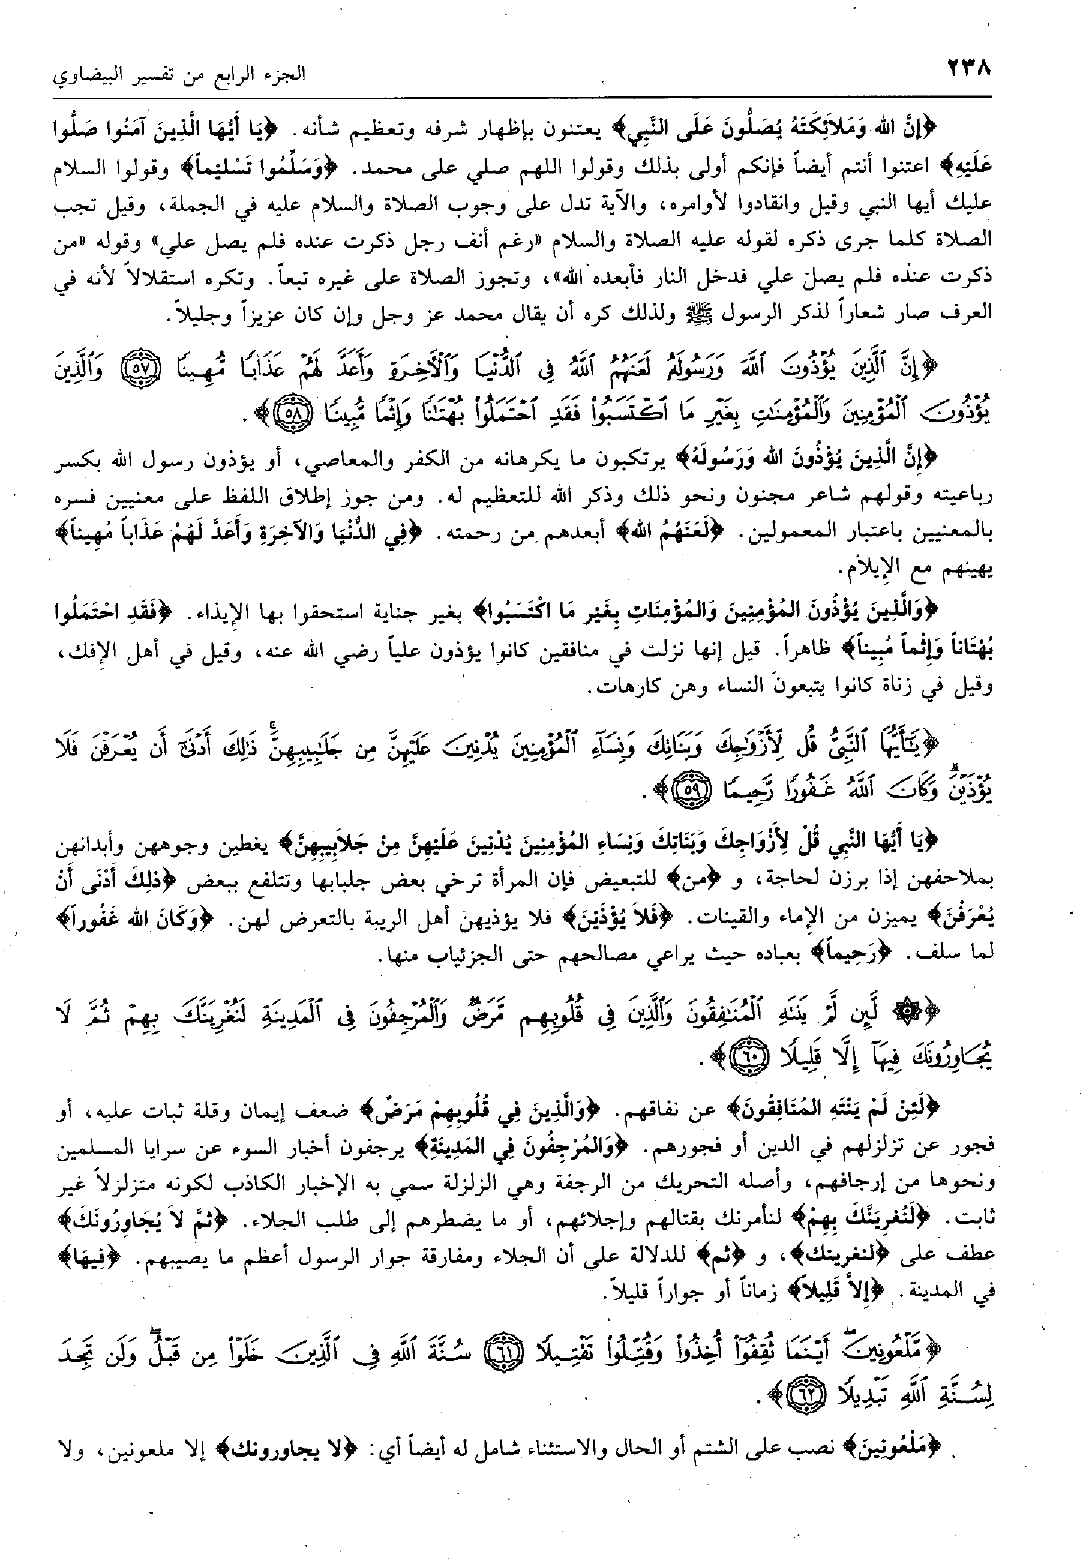 ٢٣٨
الجزء الرابع من تفسير البيضاوي
﴿إنَّ الله وَمَلاَئِكَتَهُ يُصَلُّونَ عَلَى النَّبِي﴾ يعتنون بإظهار شرفه وتعظيم شأنه. ﴿يَا أَيُّهَا الَّذِينَ آمَنُوا صَلُّوا
عَلَيْهِ﴾ اعتنوا أنتم أيضاً فإنكم أولى بذلك وقولوا اللهم صلي على محمد. ﴿وَسَلِّمُوا تَسْلِيماً﴾ وقولوا السلام
عليك أيها النبي وقيل وانقادوا لأوامره، والآية تدل على وجوب الصلاة والسلام عليه في الجملة، وقيل تجب
الصلاة كلما جرى ذكره لقوله عليه الصلاة والسلام «رغم أنف رجل ذكرت عنده فلم يصل علي» وقوله «من
ذكرت عنده فلم يصل علي فدخل النار فأبعده الله»، وتجوز الصلاة على غيره تبعاً. وتكره استقلالاً لأنه في
العرف صار شعاراً لذكر الرسول ﷺ ولذلك كره أن يقال محمد عز وجل وإن كان عزيزاً وجليلاً.
﴿إِنَّ ٱلَّذِينَ يُؤْذُونَ ٱللَّهَ وَرَسُولَهُۥ لَعَنَهُمُ ٱللَّهُ فِى ٱلدُّنْيَا وَٱلْأَخِرَةِ وَأَعَدَّ لَهُمْ عَذَابًا مُّهِينًا ﴿٥٧﴾ وَٱلَّذِينَ
يُؤْذُونَ ٱلْمُؤْمِنِينَ وَٱلْمُؤْمِنَٰتِ بِغَيْرِ مَا ٱكْتَسَبُوا۟ فَقَدِ ٱحْتَمَلُوا۟ بُهْتَٰنًا وَإِثْمًا مُّبِينًا ﴿٥٨﴾﴾.
﴿إِنَّ الَّذِينَ يُؤْذُونَ الله وَرَسُولَهُ﴾ يرتكبون ما يكرهانه من الكفر والمعاصي، أو يؤذون رسول الله بكسر
رباعيته وقولهم شاعر مجنون ونحو ذلك وذكر الله للتعظيم له. ومن جوز إطلاق اللفظ على معنيين فسره
بالمعنيين باعتبار المعمولين. ﴿لَعَنَهُمُ الله﴾ أبعدهم من رحمته. ﴿فِي الدُّنْيَا وَالآخِرَةِ وَأَعَدَّ لَهُمْ عَذَاباً مُهِيناً﴾
يهينهم مع الإيلام.
﴿وَالَّذِينَ يُؤْذُونَ المُؤْمِنِينَ وَالمُؤْمِنَاتِ بِغَيْرِ مَا اكْتَسَبُوا﴾ بغير جناية استحقوا بها الإيذاء. ﴿فَقَدِ احْتَمَلُوا
بُهْتَاناً وَإِثْماً مُبِيناً﴾ ظاهراً. قيل إنها نزلت في منافقين كانوا يؤذون علياً رضي الله عنه، وقيل في أهل الإفك،
وقيل في زناة كانوا يتبعون النساء وهن كارهات.
﴿يَٰٓأَيُّهَا ٱلنَّبِىُّ قُل لِّأَزْوَٰجِكَ وَبَنَاتِكَ وَنِسَآءِ ٱلْمُؤْمِنِينَ يُدْنِينَ عَلَيْهِنَّ مِن جَلَٰبِيبِهِنَّ ۚ ذَٰلِكَ أَدْنَىٰٓ أَن يُعْرَفْنَ فَلَا
يُؤْذَيْنَ ۗ وَكَانَ ٱللَّهُ غَفُورًا رَّحِيمًا ﴿٥٩﴾﴾.
﴿يَا أَيُّهَا النَّبِي قُلْ لأَزْوَاجِكَ وَبَنَاتِكَ وَنِسَاءِ المُؤْمِنِينَ يُدْنِينَ عَلَيْهِنَّ مِنْ جَلاَبِيبِهِنَّ﴾ يغطين وجوههن وأبدانهن
بملاحفهن إذا برزن لحاجة، و ﴿من﴾ للتبعيض فإن المرأة ترخي بعض جلبابها وتتلفع ببعض ﴿ذلِكَ أَدْنَى أَنْ
يُعْرَفْنَ﴾ يميزن من الإماء والقينات. ﴿فَلاَ يُؤْذَيْنَ﴾ فلا يؤذيهن أهل الريبة بالتعرض لهن. ﴿وَكَانَ الله غَفُوراً﴾
لما سلف. ﴿رَحِيماً﴾ بعباده حيث يراعي مصالحهم حتى الجزئياب منها.
﴿۞ لَّئِن لَّمْ يَنتَهِ ٱلْمُنَٰفِقُونَ وَٱلَّذِينَ فِى قُلُوبِهِم مَّرَضٌ وَٱلْمُرْجِفُونَ فِى ٱلْمَدِينَةِ لَنُغْرِيَنَّكَ بِهِمْ ثُمَّ لَا
يُجَاوِرُونَكَ فِيهَآ إِلَّا قَلِيلًا ﴿٦٠﴾﴾.
﴿لَئِنْ لَمْ يَنْتَهِ المُنَافِقُونَ﴾ عن نفاقهم. ﴿وَالَّذِينَ فِي قُلُوبِهِمْ مَرَضٌ﴾ ضعف إيمان وقلة ثبات عليه، أو
فجور عن تزلزلهم في الدين أو فجورهم. ﴿وَالمُرْجِفُونَ فِي المَدِينَةِ﴾ يرجفون أخبار السوء عن سرايا المسلمين
ونحوها من إرجافهم، وأصله التحريك من الرجفة وهي الزلزلة سمي به الإخبار الكاذب لكونه متزلزلاً غير
ثابت. ﴿لَنُغْرِيَنَّكَ بِهِمْ﴾ لنأمرنك بقتالهم وإجلائهم، أو ما يضطرهم إلى طلب الجلاء. ﴿ثُمَّ لاَ يُجَاوِرُونَكَ﴾
عطف على ﴿لنغرينك﴾، و ﴿ثم﴾ للدلالة على أن الجلاء ومفارقة جوار الرسول أعظم ما يصيبهم. ﴿فِيهَا﴾
في المدينة. ﴿إِلاَّ قَلِيلاً﴾ زماناً أو جواراً قليلاً.
﴿مَّلْعُونِينَ ۖ أَيْنَمَا ثُقِفُوٓا۟ أُخِذُوا۟ وَقُتِّلُوا۟ تَقْتِيلًا ﴿٦١﴾ سُنَّةَ ٱللَّهِ فِى ٱلَّذِينَ خَلَوْا۟ مِن قَبْلُ ۖ وَلَن تَجِدَ
لِسُنَّةِ ٱللَّهِ تَبْدِيلًا ﴿٦٢﴾﴾.
﴿مَلْعُونِينَ﴾ نصب على الشتم أو الحال والاستثناء شامل له أيضاً أي: ﴿لا يجاورونك﴾ إلا ملعونين، ولا